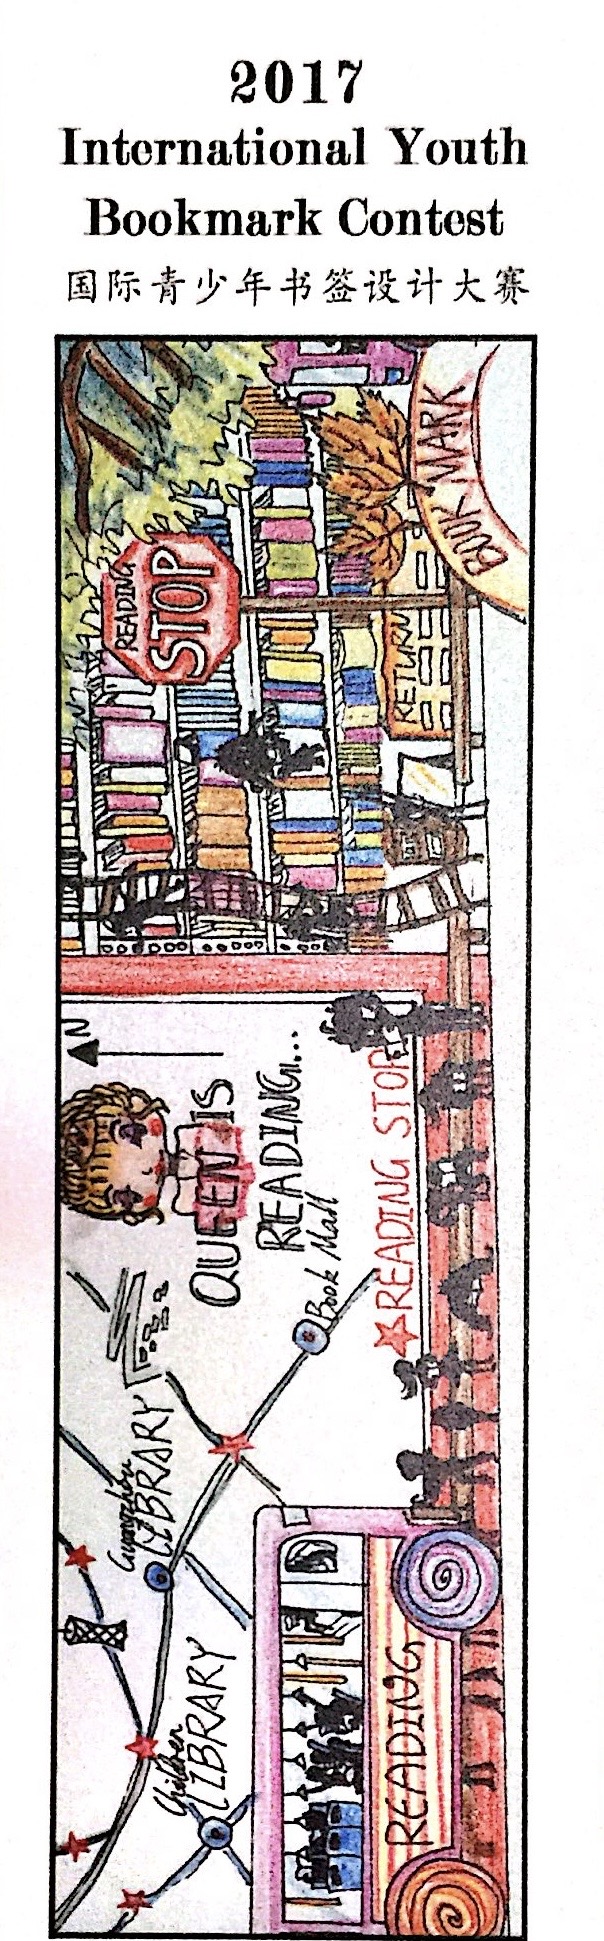 2017
International Youth
Bookmark Contest
国际青少年书签设计大赛
BOOK MARK
READING
STOP
RETURN
N
QUEEN IS
READING...
Book Mall
READING STOP
Guangzhou
LIBRARY
Children
LIBRARY
READING